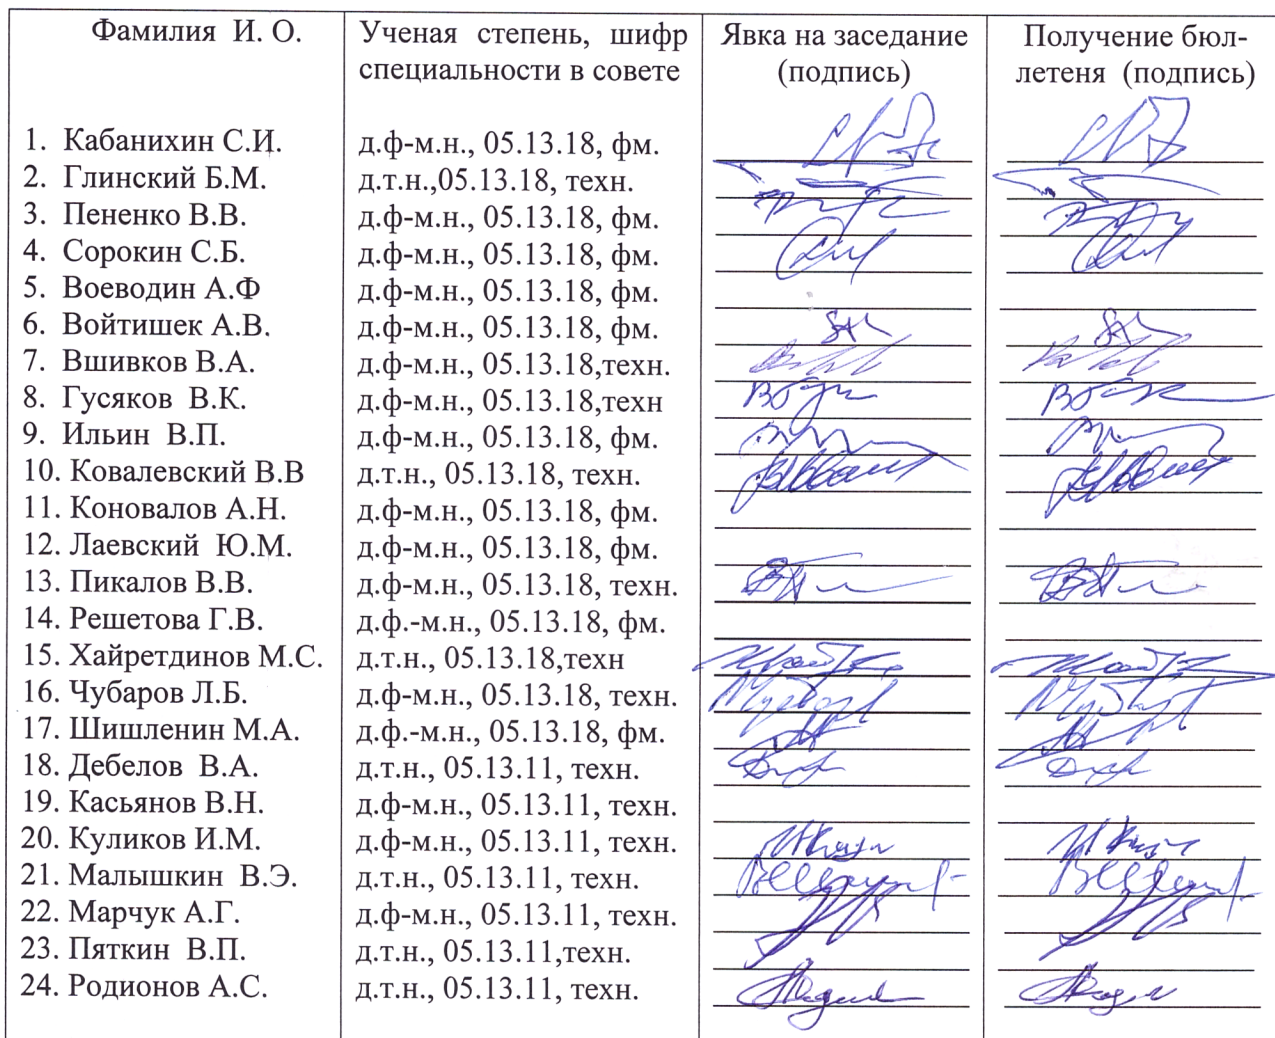 Фамилия И. О. Ученая степень, шифр Явка на заседание Получение бюл-
специальности в совете (подпись) летеня (подпись)
1. Кабанихин С.И. д.ф-м.н., 05.13.18, фм.
2. Глинский Б.М. д.т.н.,05.13.18, техн.
3. Пененко В.В. д.ф-м.н., 05.13.18, фм.
4. Сорокин С.Б. д.ф-м.н., 05.13.18, фм.
5. Воеводин А.Ф д.ф-м.н., 05.13.18, фм.
6. Войтишек А.В. д.ф-м.н., 05.13.18, фм.
7. Вшивков В.А. д.ф-м.н., 05.13.18,техн.
8. Гусяков В.К. д.ф-м.н., 05.13.18,техн
9. Ильин В.П. д.ф-м.н., 05.13.18, фм.
10. Ковалевский В.В д.т.н., 05.13.18, техн.
11. Коновалов А.Н. д.ф-м.н., 05.13.18, фм.
12. Лаевский Ю.М. д.ф-м.н., 05.13.18, фм.
13. Пикалов В.В. д.ф-м.н., 05.13.18, техн.
14. Решетова Г.В. д.ф.-м.н., 05.13.18, фм.
15. Хайретдинов М.С. д.т.н., 05.13.18,техн
16. Чубаров Л.Б. д.ф-м.н., 05.13.18, техн.
17. Шишленин М.А. д.ф.-м.н., 05.13.18, фм.
18. Дебелов В.А. д.т.н., 05.13.11, техн.
19. Касьянов В.Н. д.ф-м.н., 05.13.11, техн.
20. Куликов И.М. д.ф-м.н., 05.13.11, техн.
21. Малышкин В.Э. д.т.н., 05.13.11, техн.
22. Марчук А.Г. д.ф-м.н., 05.13.11, техн.
23. Пяткин В.П. д.т.н., 05.13.11,техн.
24. Родионов А.С. д.т.н., 05.13.11, техн.